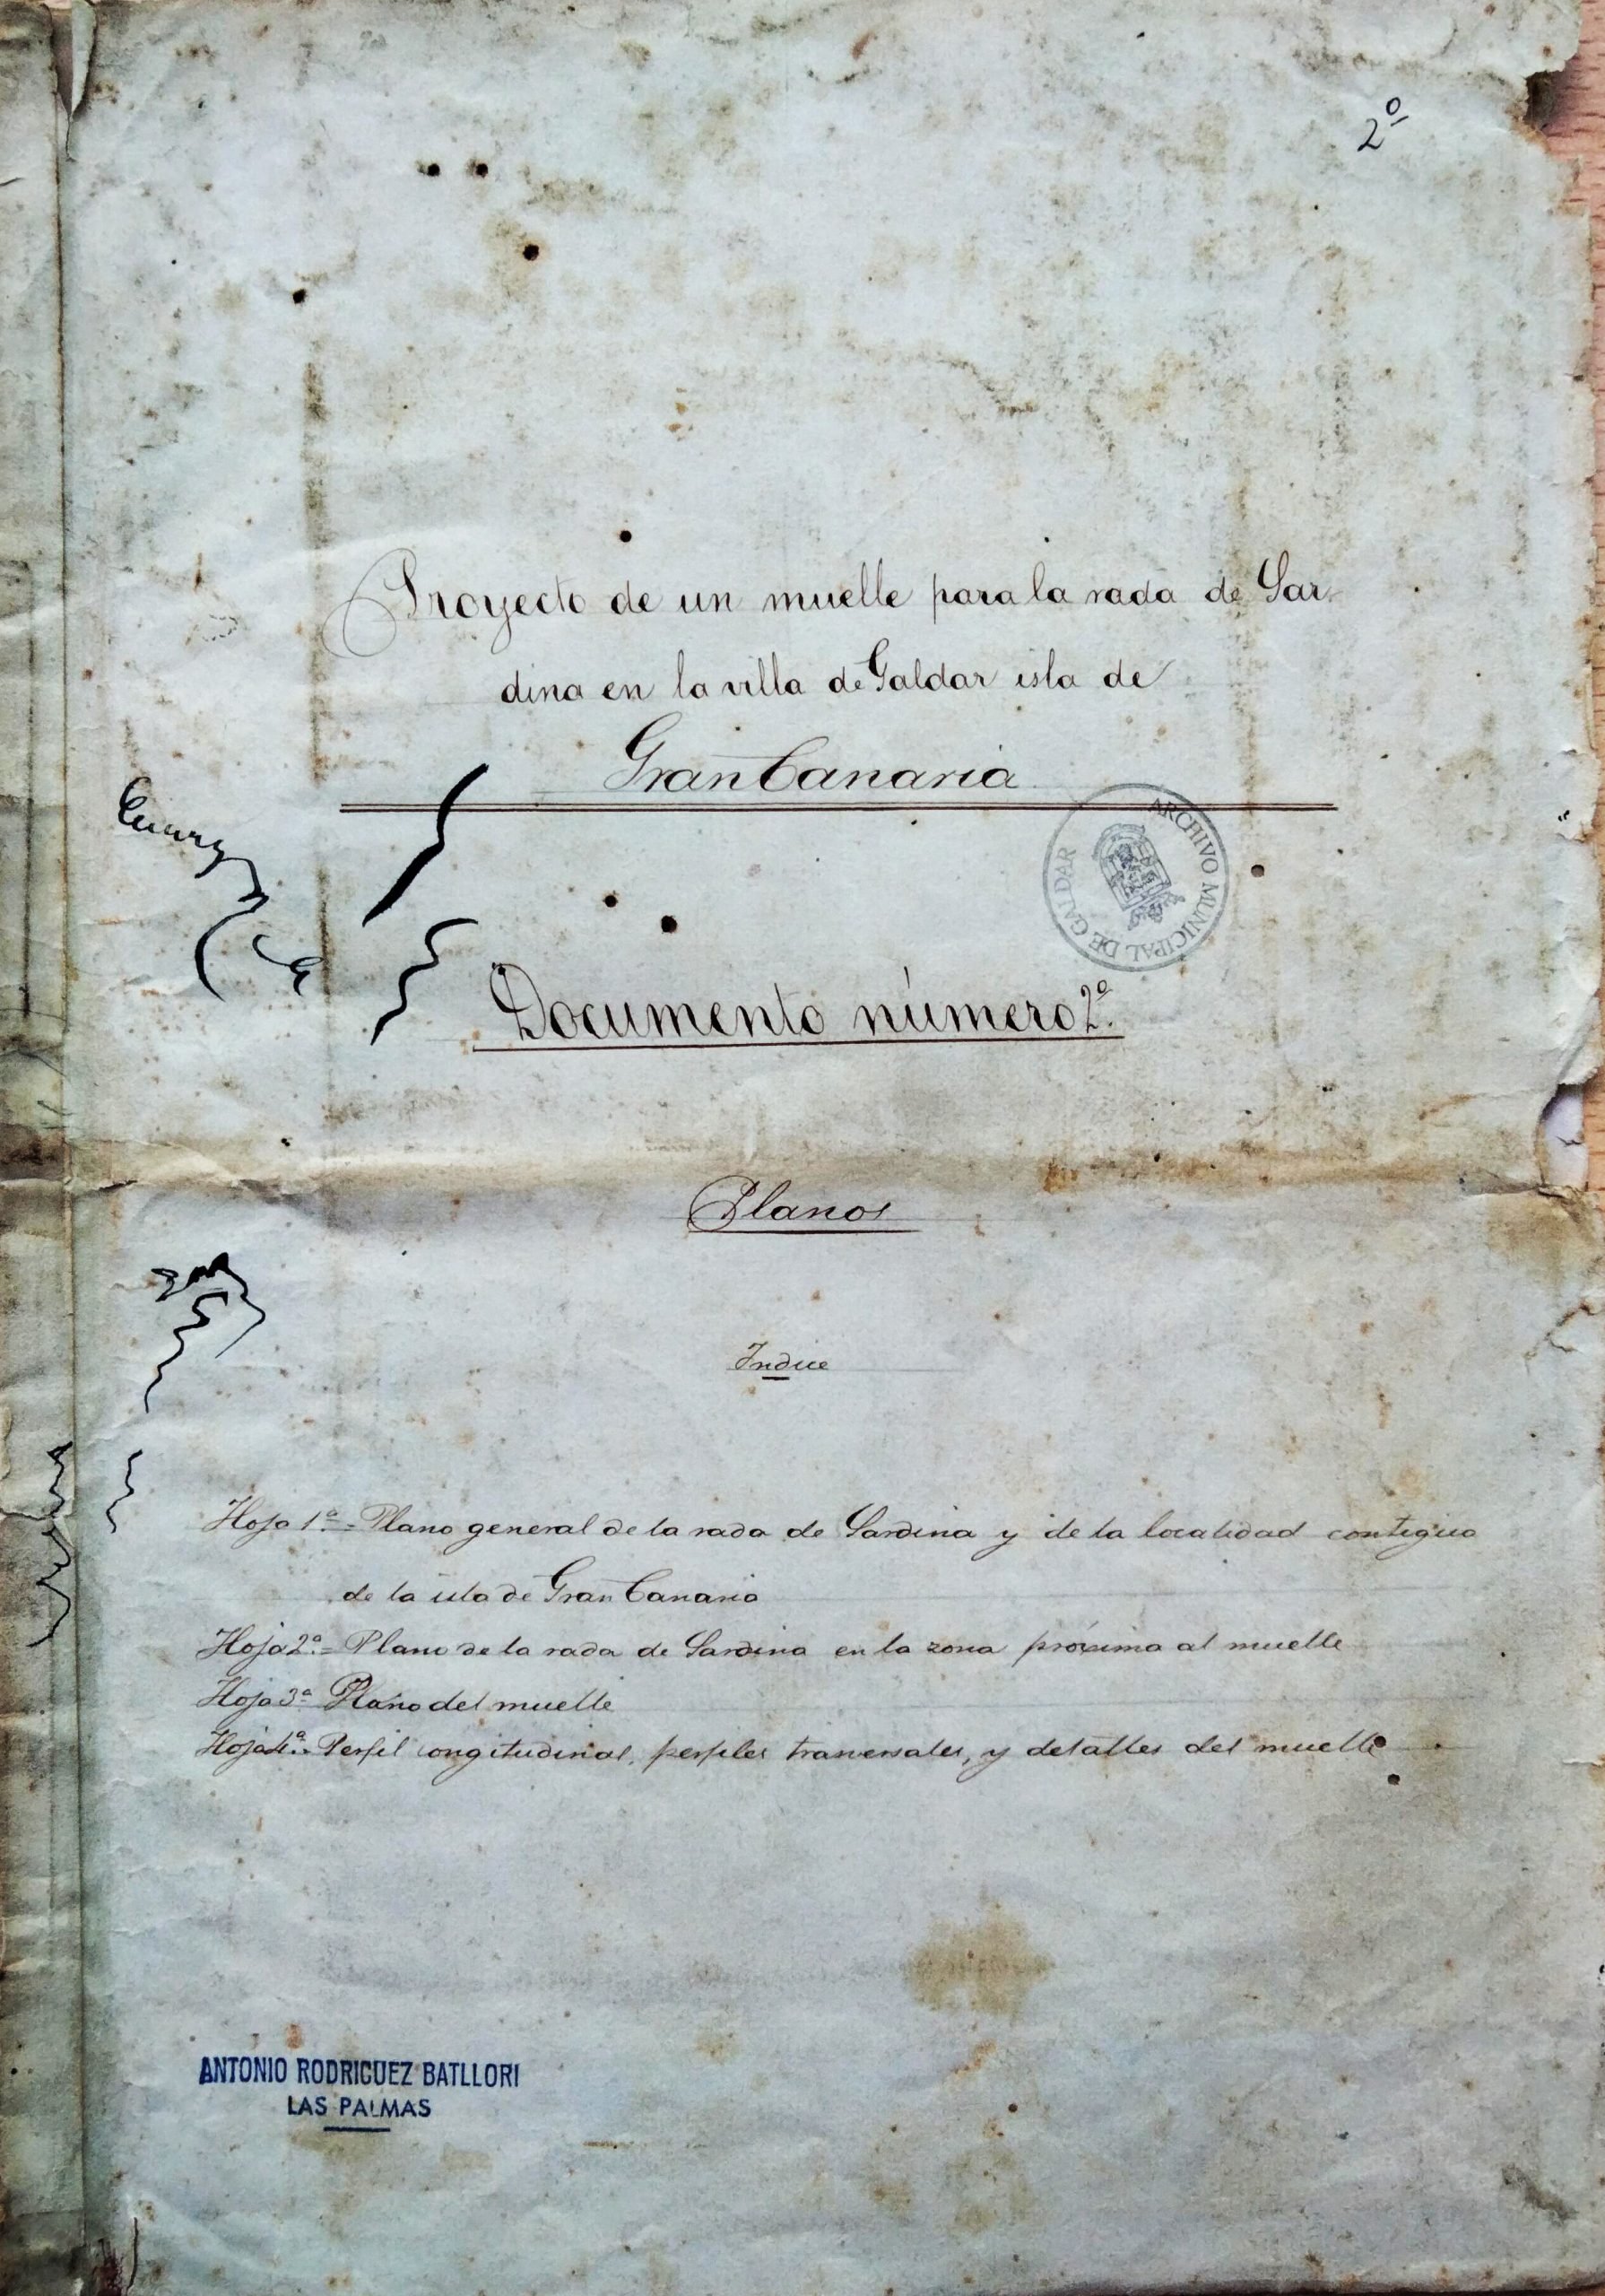 2º
Proyecto de un muelle para la rada de Sar-
dina en la villa de Galdar isla de
Gran Canaria
ARCHIVO MUNICIPAL DE GALDAR
Documento número 2º.
Planos
Indice
Hoja 1ª = Plano general de la rada de Sardina y de la localidad contigua
de la isla de Gran Canaria
Hoja 2ª. = Plano de la rada de Sardina en la zona próxima al muelle
Hoja 3ª Plano del muelle
Hoja 4ª. = Perfil longitudinal, perfiles tranversales, y detalles del muelle
ANTONIO RODRIGUEZ BATLLORI
LAS PALMAS